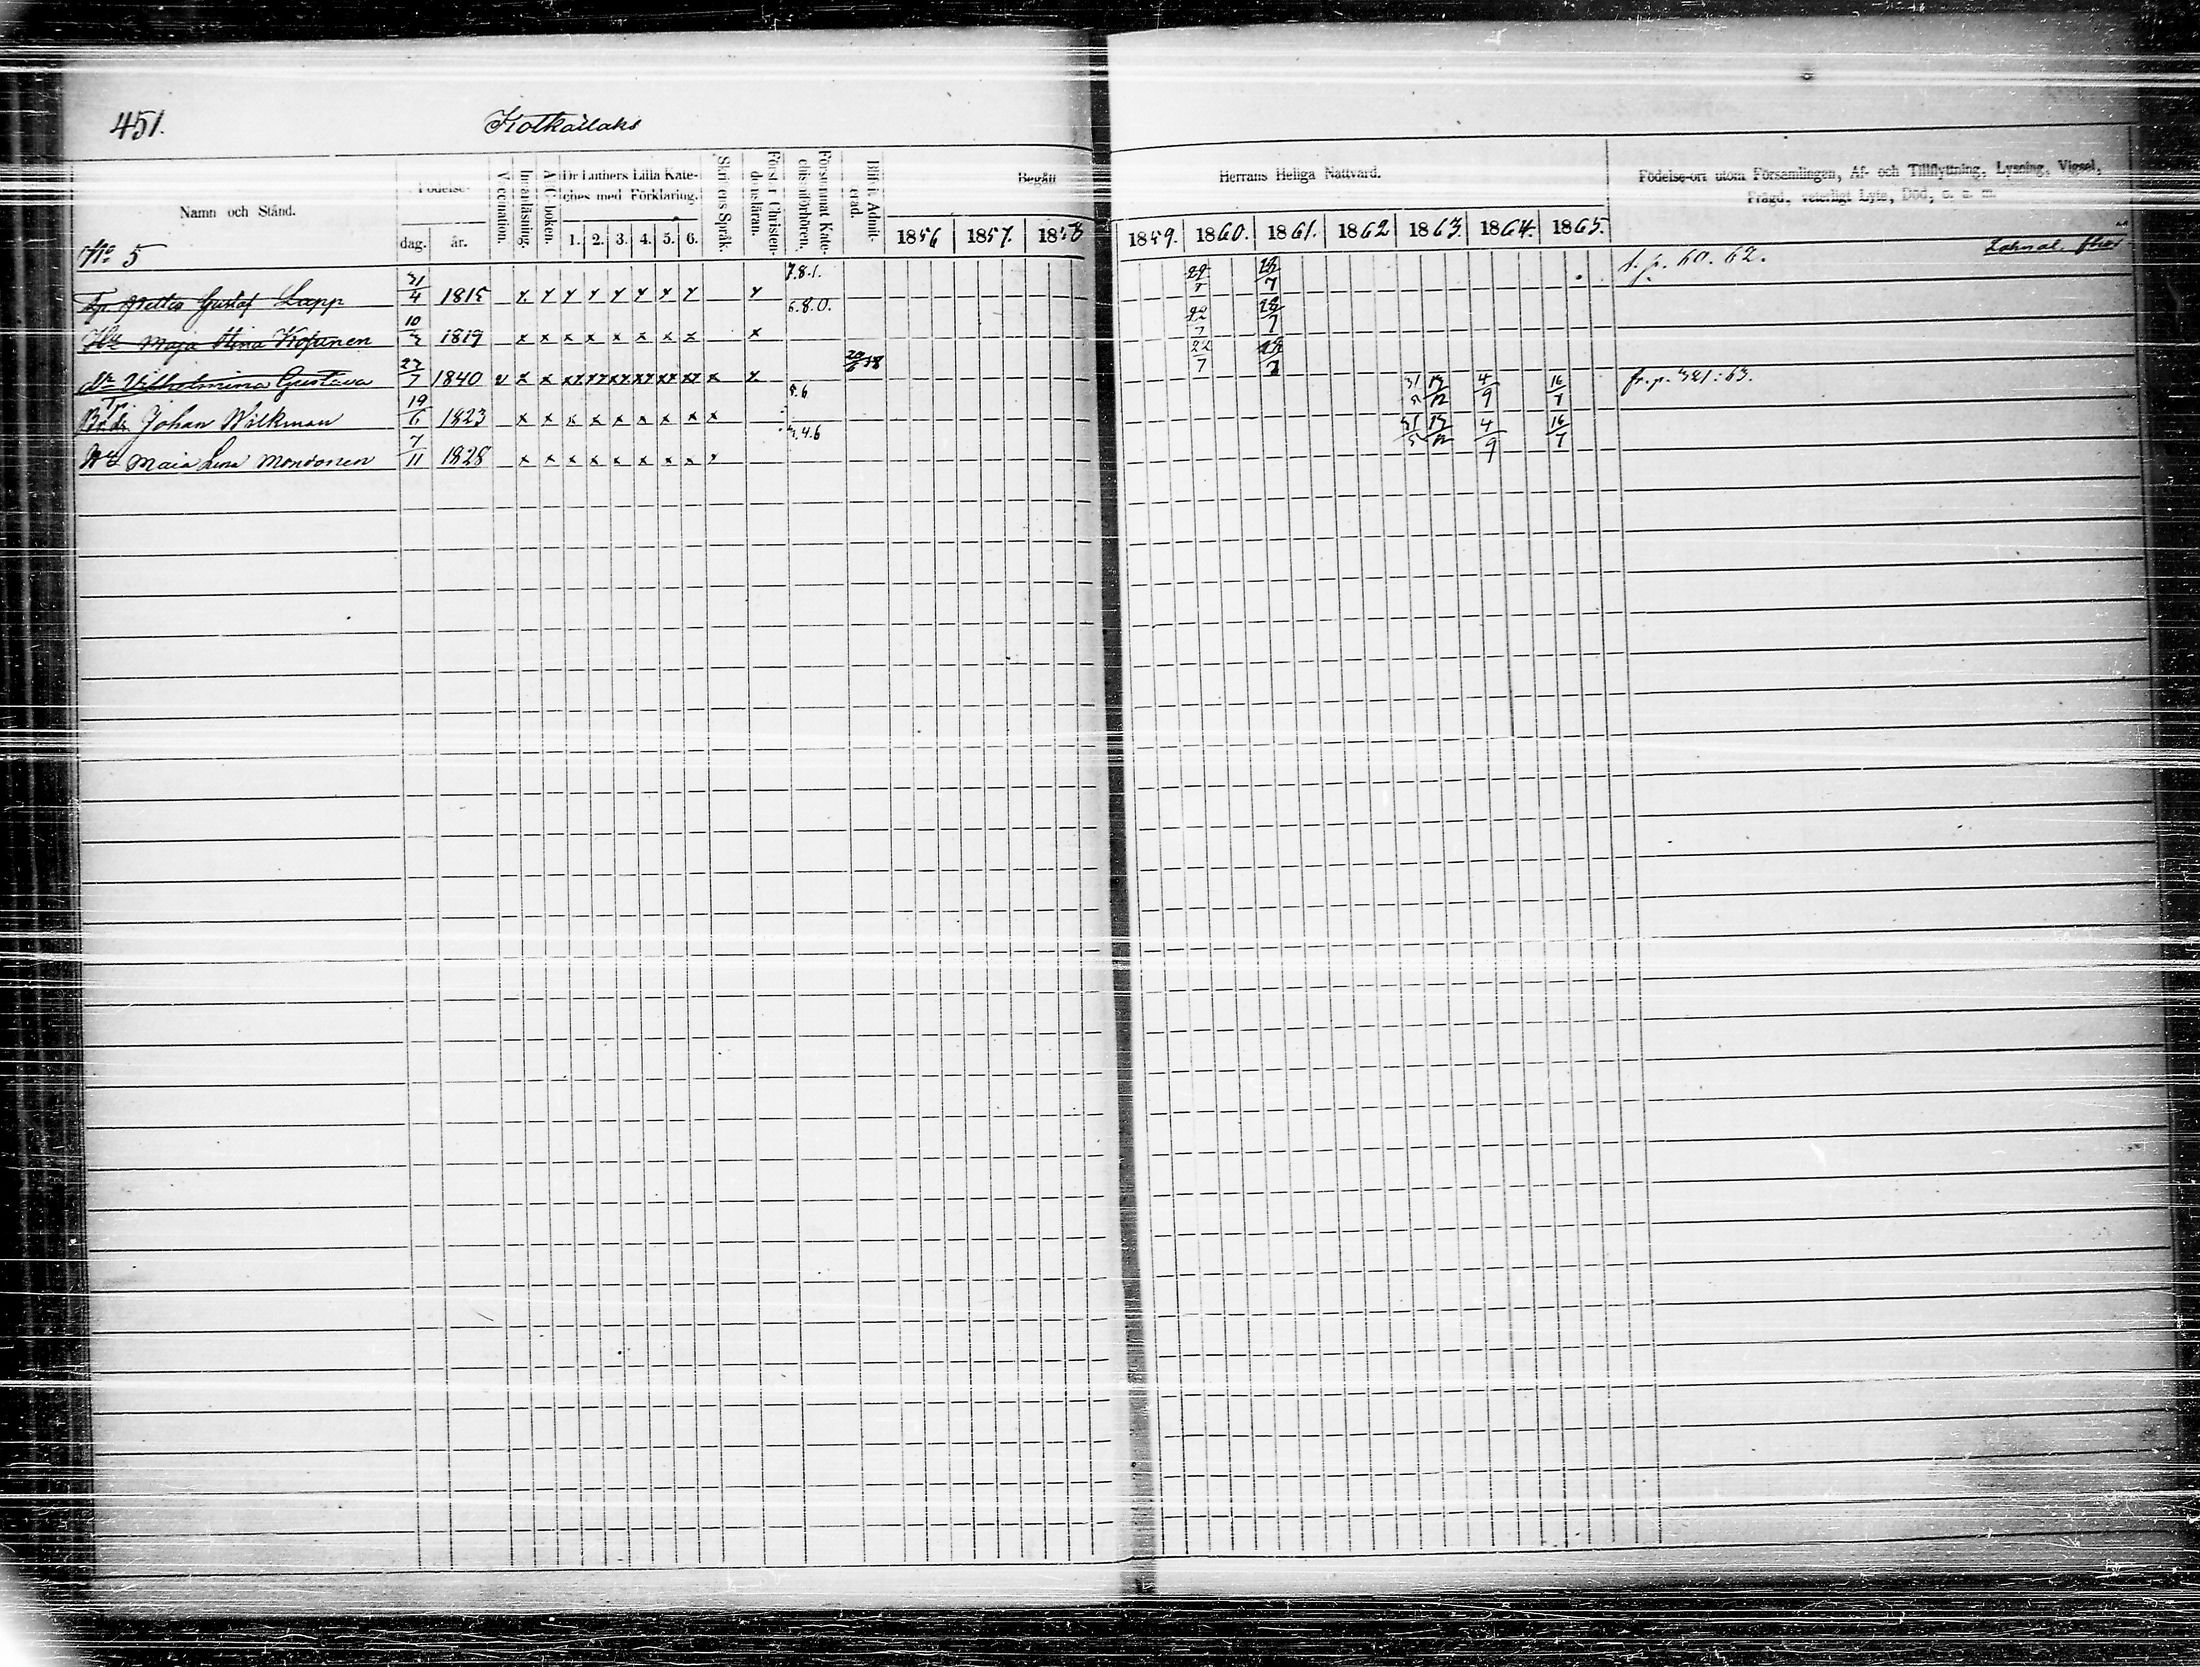 451. Kotkatlaks
Namn och Stånd. Födelse- dag. år. Vaccination. Innanläsning. A-B-boken. Dr Luthers Lilla Kateches med Förklaring. 1. 2. 3. 4. 5. 6. Skriftens Språk. Förstår Christendomsläran. Försummat Katechismiförhören. Blifvit Admitterad. Begått 1856 1857. 1858
Herrans Heliga Nattvard. 1859. 1860. 1861. 1862 1863. 1864. 1865.
Födelse-ort utom Församlingen, Af- och Tillflyttning, Lysning, Vigsel, Frägd, veterligt Lyte, Död, o. s. m.
No 5
Gustaf Lapp 31/4 1815 x x x x x x x x x 7.8.1. 22/7 28/7 t. p. 60. 62.
Hu Maja Stina Kopanen 10/3 1819 x x x x x x x x x 6.8.0. 22/7 28/7
dr Vilhelmina Gustava 27/7 1840 v x x x x x x x x x x 22/7 28/7
Johan Wilkman 19/6 1823 x x x x x x x x x 5.6 31/5 13/12 4/9 16/7 fr. p. 321:63.
Hu Maia Lena Mononen 7/11 1828 x x x x x x x x x 3.4.6 31/5 13/12 4/9 16/7